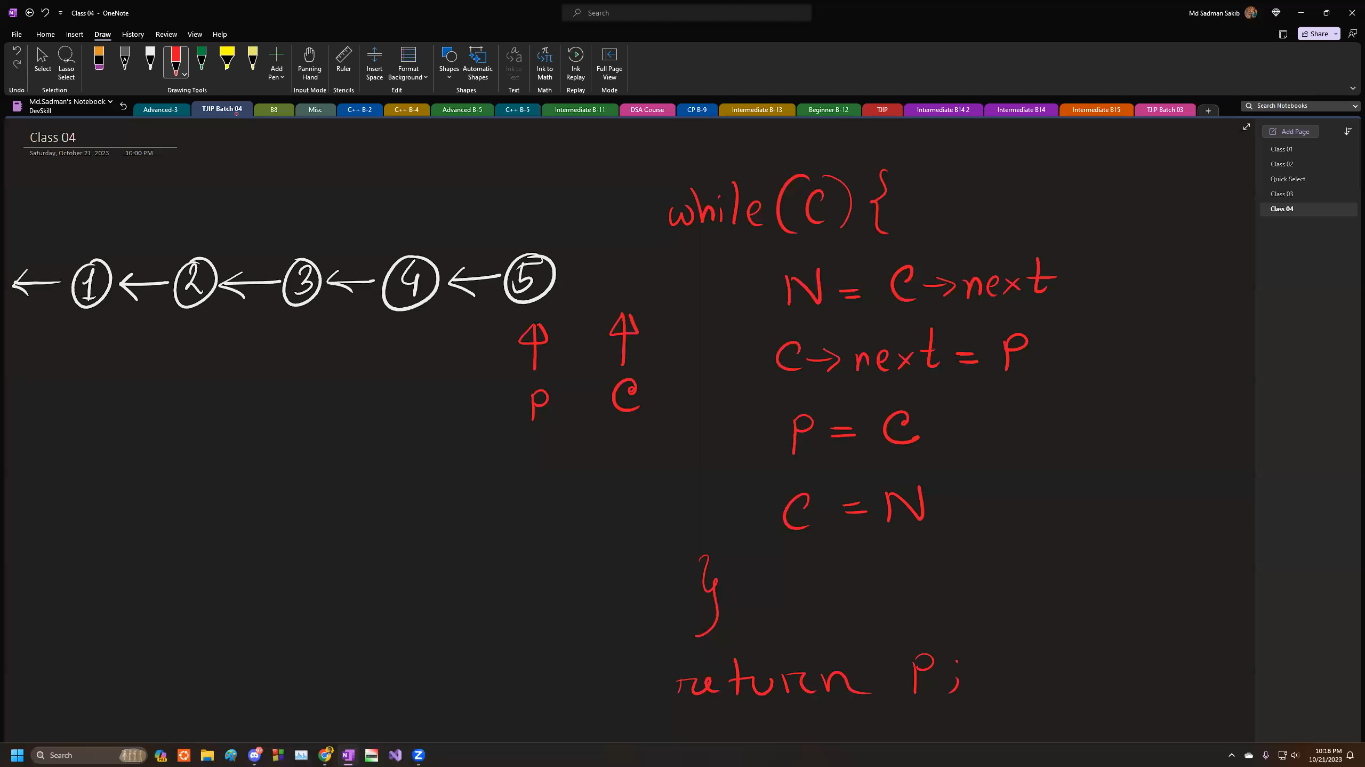 Class 04 - OneNote
Search
Md Sadman Sakib
File Home Insert Draw History Review View Help
Share
Undo
Select
Lasso Select
Selection
Add Pen
Drawing Tools
Panning Hand
Input Mode
Ruler
Stencils
Insert Space
Format Background
Edit
Shapes
Automatic Shapes
Shapes
Ink to Text
Text
Ink to Math
Math
Ink Replay
Replay
Full Page View
Mode
Md.Sadman's Notebook
DevSkill
Advanced-3 TJIP Batch 04 B8 Misc C++ B-2 C++ B-4 Advanced B-5 C++ B-5 Intermediate B-11 DSA Course CP B-9 Intermediate B-13 Beginner B-12 TJIP Intermediate B14.2 Intermediate B14 Intermediate B15 TJIP Batch 03 +
Search Notebooks
Class 04
Saturday, October 21, 2023 10:00 PM
Add Page
Class 01
Class 02
Quick Select
Class 03
Class 04
← 1 ← 2 ← 3 ← 4 ← 5
P C
while (C) {
N = C → next
C → next = P
P = C
C = N
}
return P;
Search
10:18 PM
10/21/2023